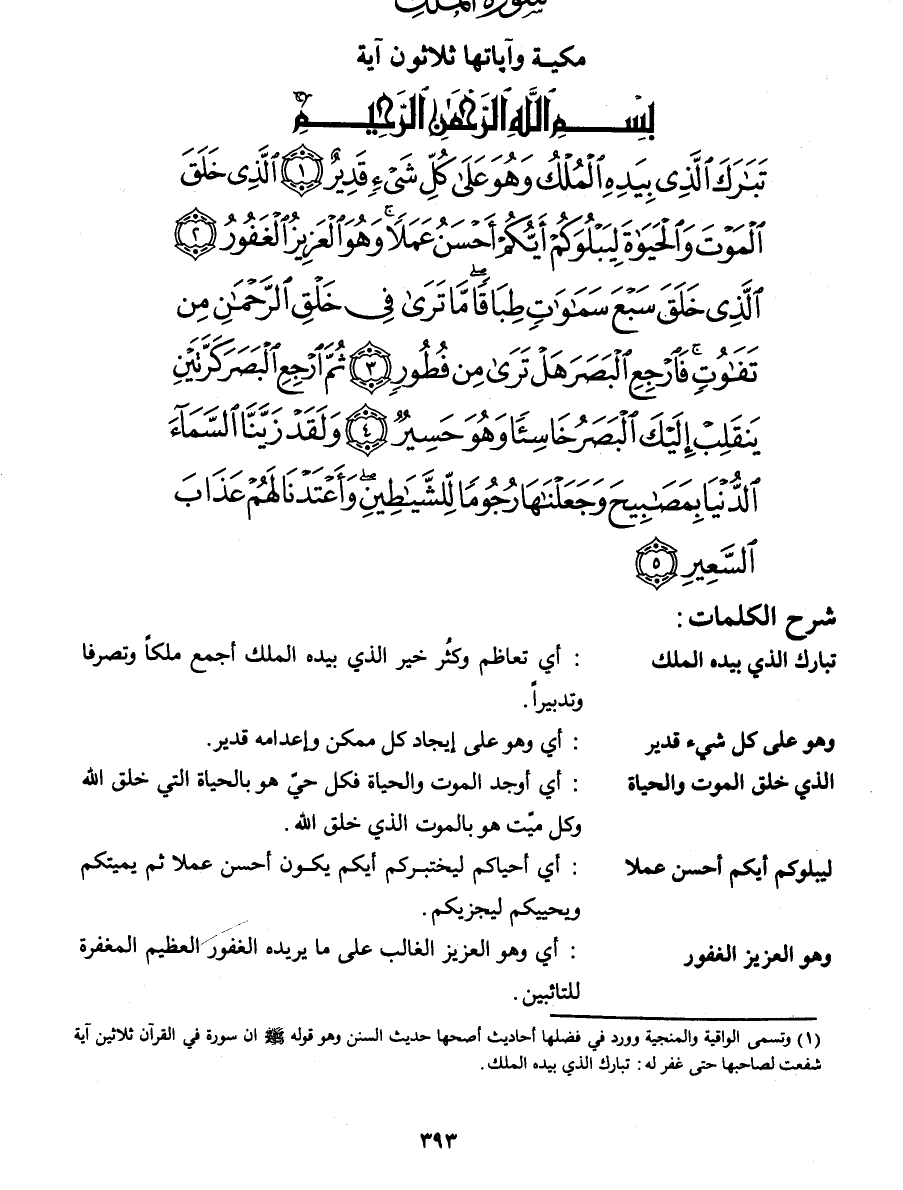 سورة الملك
مكية وآياتها ثلاثون آية
بِسْمِ اللَّهِ الرَّحْمَٰنِ الرَّحِيمِ
تَبَٰرَكَ ٱلَّذِى بِيَدِهِ ٱلْمُلْكُ وَهُوَ عَلَىٰ كُلِّ شَىْءٍ قَدِيرٌ ١ ٱلَّذِى خَلَقَ
ٱلْمَوْتَ وَٱلْحَيَوٰةَ لِيَبْلُوَكُمْ أَيُّكُمْ أَحْسَنُ عَمَلًاۚ وَهُوَ ٱلْعَزِيزُ ٱلْغَفُورُ ٢
ٱلَّذِى خَلَقَ سَبْعَ سَمَٰوَٰتٍ طِبَاقًاۖ مَّا تَرَىٰ فِى خَلْقِ ٱلرَّحْمَٰنِ مِن
تَفَٰوُتٍۚ فَٱرْجِعِ ٱلْبَصَرَ هَلْ تَرَىٰ مِن فُطُورٍ ٣ ثُمَّ ٱرْجِعِ ٱلْبَصَرَ كَرَّتَيْنِ
يَنقَلِبْ إِلَيْكَ ٱلْبَصَرُ خَاسِئًا وَهُوَ حَسِيرٌ ٤ وَلَقَدْ زَيَّنَّا ٱلسَّمَآءَ
ٱلدُّنْيَا بِمَصَٰبِيحَ وَجَعَلْنَٰهَا رُجُومًا لِّلشَّيَٰطِينِۖ وَأَعْتَدْنَا لَهُمْ عَذَابَ
ٱلسَّعِيرِ ٥
شرح الكلمات :
تبارك الذي بيده الملك : أي تعاظم وكثُر خير الذي بيده الملك أجمع ملكاً وتصرفا
وتدبيراً .
وهو على كل شيء قدير : أي وهو على إيجاد كل ممكن وإعدامه قدير .
الذي خلق الموت والحياة : أي أوجد الموت والحياة فكل حيّ هو بالحياة التي خلق الله
وكل ميّت هو بالموت الذي خلق الله .
ليبلوكم أيكم أحسن عملا : أي أحياكم ليختبركم أيكم يكون أحسن عملا ثم يميتكم
ويحييكم ليجزيكم .
وهو العزيز الغفور : أي وهو العزيز الغالب على ما يريده الغفور العظيم المغفرة
للتائبين .
(١) وتسمى الواقية والمنجية وورد في فضلها أحاديث أصحها حديث السنن وهو قوله ﷺ ان سورة في القرآن ثلاثين آية
شفعت لصاحبها حتى غفر له : تبارك الذي بيده الملك .
٣٩٣